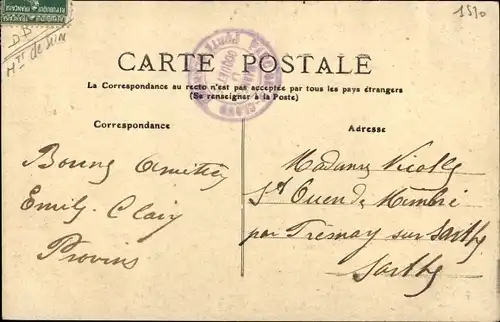 1510
CARTE POSTALE
La Correspondance au recto n'est pas acceptée par tous les pays étrangers
(Se renseigner à la Poste)
Correspondance
Adresse
Bonnes Amitiés
Emily. Clairy
Provins
Madame Nicolle
St Ouen de Mimbré
par Fresnay sur Sarthe
Sarthe